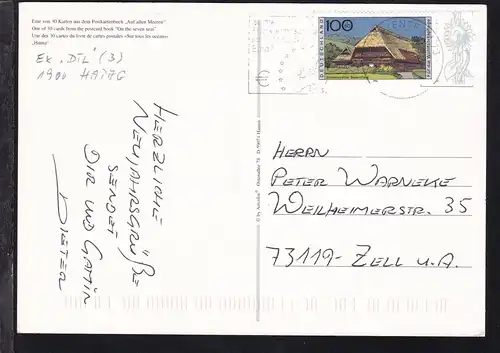 Eine von 30 Karten aus dem Postkartenbuch „Auf allen Meeren“
One of 30 cards from the postcard book “On the seven seas”
Une des 30 cartes du livre de cartes postales «Sur tous les océans»
"Hansa"
Ex „DTL“ (3)
1900 HATAG
HERZLICHE
NEUJAHRSGRÜßE
SENDET
DIR UND GATTIN
DIETER
100
DEUTSCHLAND
HERRN
PETER WARNEKE
WEILHEIMERSTR. 35
73119- ZELL u.A.